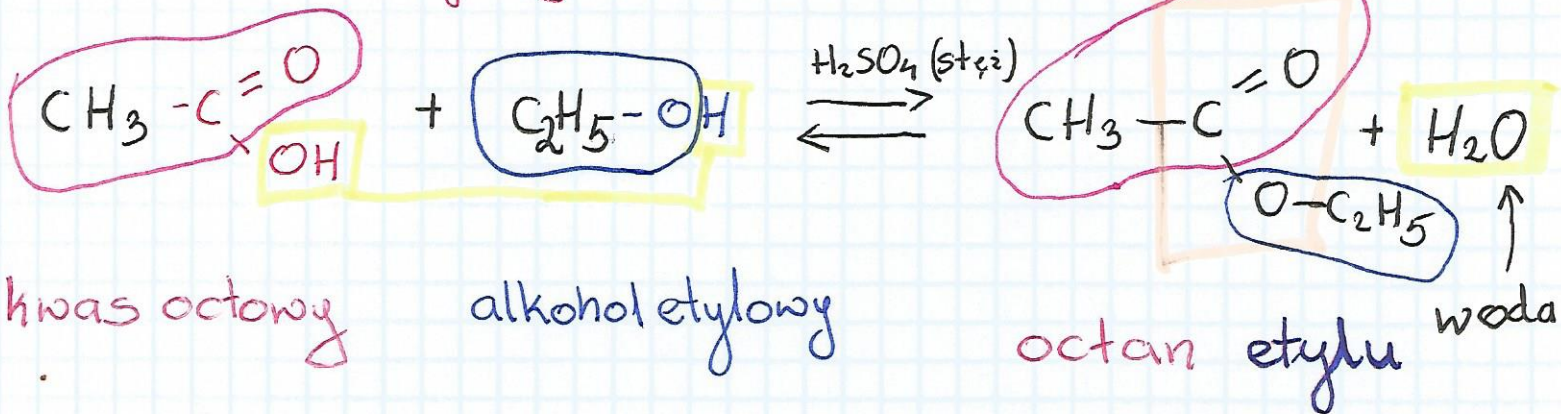 CH3-C=O OH + C2H5-OH H2SO4 (stęż) ⇌ CH3-C=O O-C2H5 + H2O
kwas octowy alkohol etylowy octan etylu woda